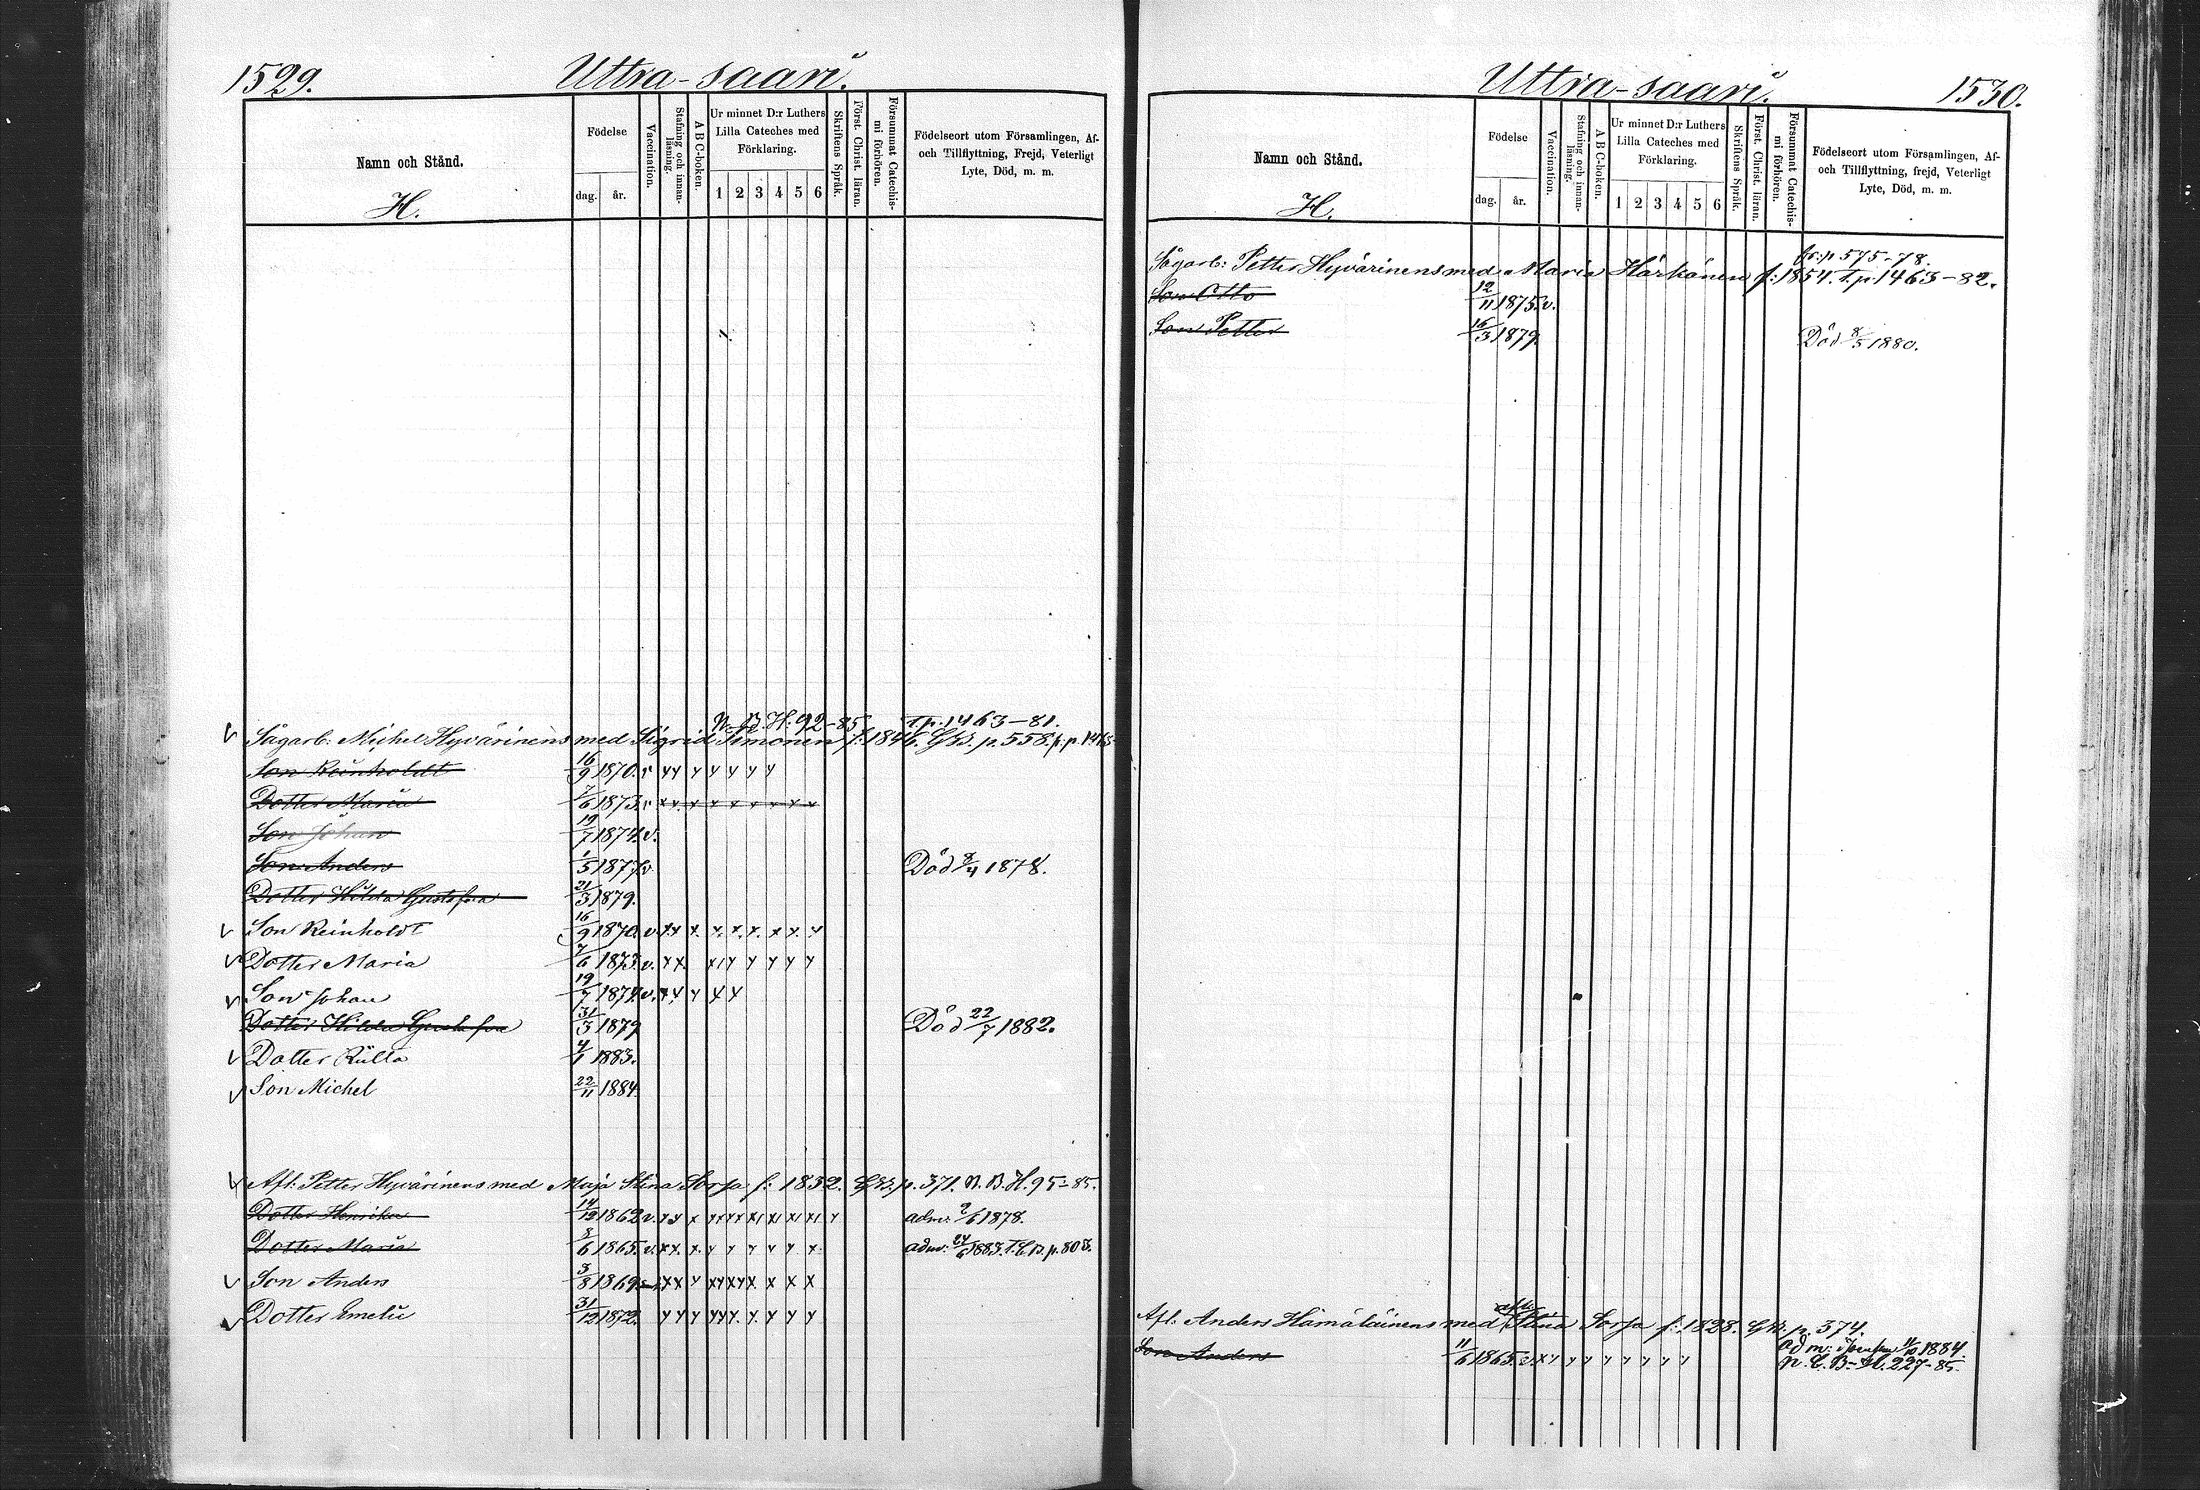 1529.
Uttra-saari.
Namn och Stånd.
H.
Födelse
dag. år.
Vaccination.
Stafning och innan-läsning.
A B C-boken.
Ur minnet D:r Luthers
Lilla Cateches med
Förklaring.
1 2 3 4 5 6
Skriftens Språk.
Först. Christ. läran.
Försummat Catechis-mi förhören.
Födelseort utom Församlingen, Af-
och Tillflyttning, Frejd, Veterligt
Lyte, Död, m. m.
N. B. H. 92-85 T. p. 1463-81.
Sågarb: Michel Hyvärinens med Sigrid Timonen f: 1846. GB. p. 558.
Son Reinholdt 16/9 1870. v xx x x x x x
Dotter Maria 7/6 1873. v x x x x x x x x x
Son Johan 19/7 1874. v.
Son Anders 1/5 1877. v Död 8/4 1878.
Dotter Hilda Gustafva 21/3 1879.
Son Reinholdt 16/9 1870. v. x x x. x. x. x. x x. x
Dotter Maria 7/6 1873. v. x x. x x x x x x
Son Johan 19/7 1874. v. x x x x x
Dotter Hilda Gustafva 31/3 1879 Död 22/7 1882.
Dotter Rülta 4/1 1883.
Son Michel 22/11 1884
Afl: Petter Hyvärinens med Maja Stina Sorsa f: 1832. GB. p. 371. N. B. H. 95-85.
Dotter Henrika 14/12 1862 v. adm: 2/6 1878.
Dotter Maria 3/6 1865. v. adm: 24/6 1883. T. L. B. p. 803.
Son Anders 3/8 1869
Dotter Emelie 31/12 1872.
Uttra-saari.
1530.
Namn och Stånd.
H.
Födelse
dag. år.
Vaccination.
Stafning och innan-läsning.
A B C-boken.
Ur minnet D:r Luthers
Lilla Cateches med
Förklaring.
1 2 3 4 5 6
Skriftens Språk.
Först. Christ. läran.
Försummat Catechis-mi förhören.
Födelseort utom Församlingen, Af-
och Tillflyttning, frejd, Veterligt
Lyte, Död, m. m.
fr: p 575-78.
Sågarb: Petter Hyvärinens med Maria Härkönen f: 1854. T. p 1463-82.
Son Otto 12/11 1875. v.
Son Petter 16/3 1879. Död 8/5 1880.
Afl: Anders Hämäläinens med Stina Sorsa f: 1828. GB. p. 374.
Son Anders 11/6 1865. v x x x x x x x x x adm: 11/10 1884.
N. L. B. H. 227-85.